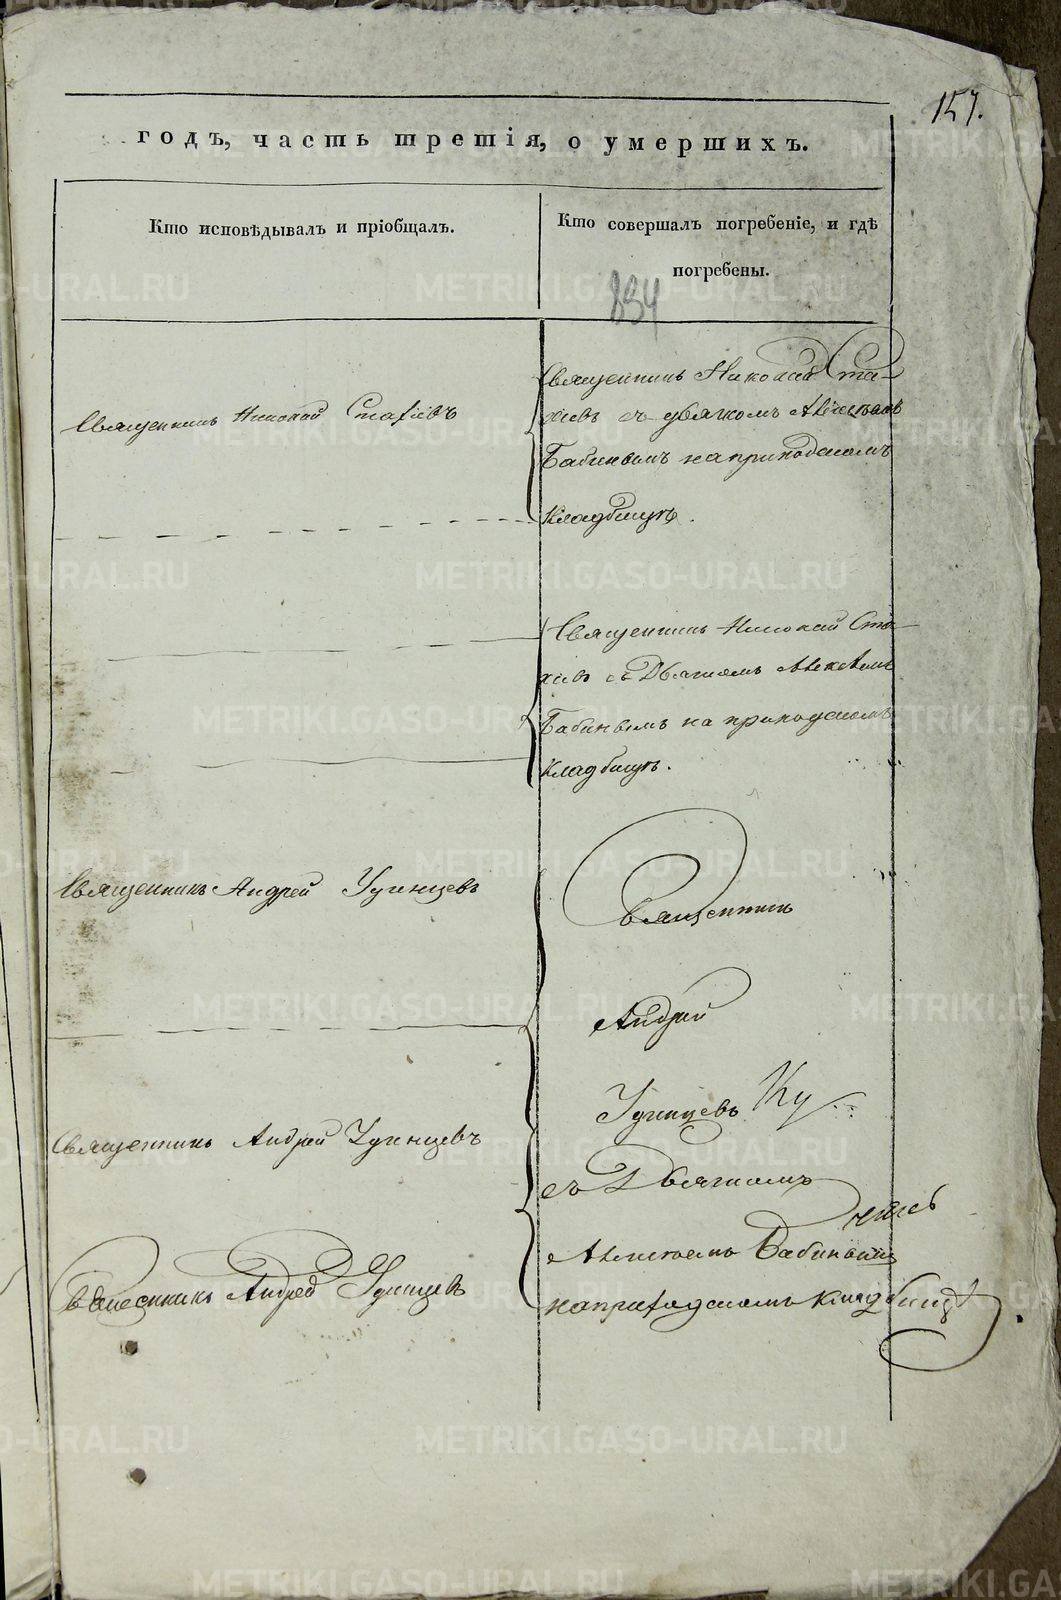 157.
годъ, часть третія, о умершихъ.
Кто исповѣдывалъ и пріобщалъ.
Кто совершалъ погребеніе, и гдѣ
погребены.
834
Священникъ Николай Стахіевъ
Священникъ Николай Ста-
хіевъ съ дьякомъ Алексѣемъ
Бабинымъ на приходскомъ
Кладбищѣ.
Священникъ Николай Ста-
хіевъ съ Дьячкомъ Алексѣемъ
Бабинымъ на приходскомъ
Кладбищѣ.
Священникъ Андрей Удинцевъ
Священникъ
Андрей
Удинцевъ
Священникъ Андрей Удинцевъ
съ Дьячкомъ
Алексѣемъ Бабинымъ
Священникъ Андрей Удинцевъ
на приходскомъ Кладбищѣ.
METRIKI.GASO-URAL.RU